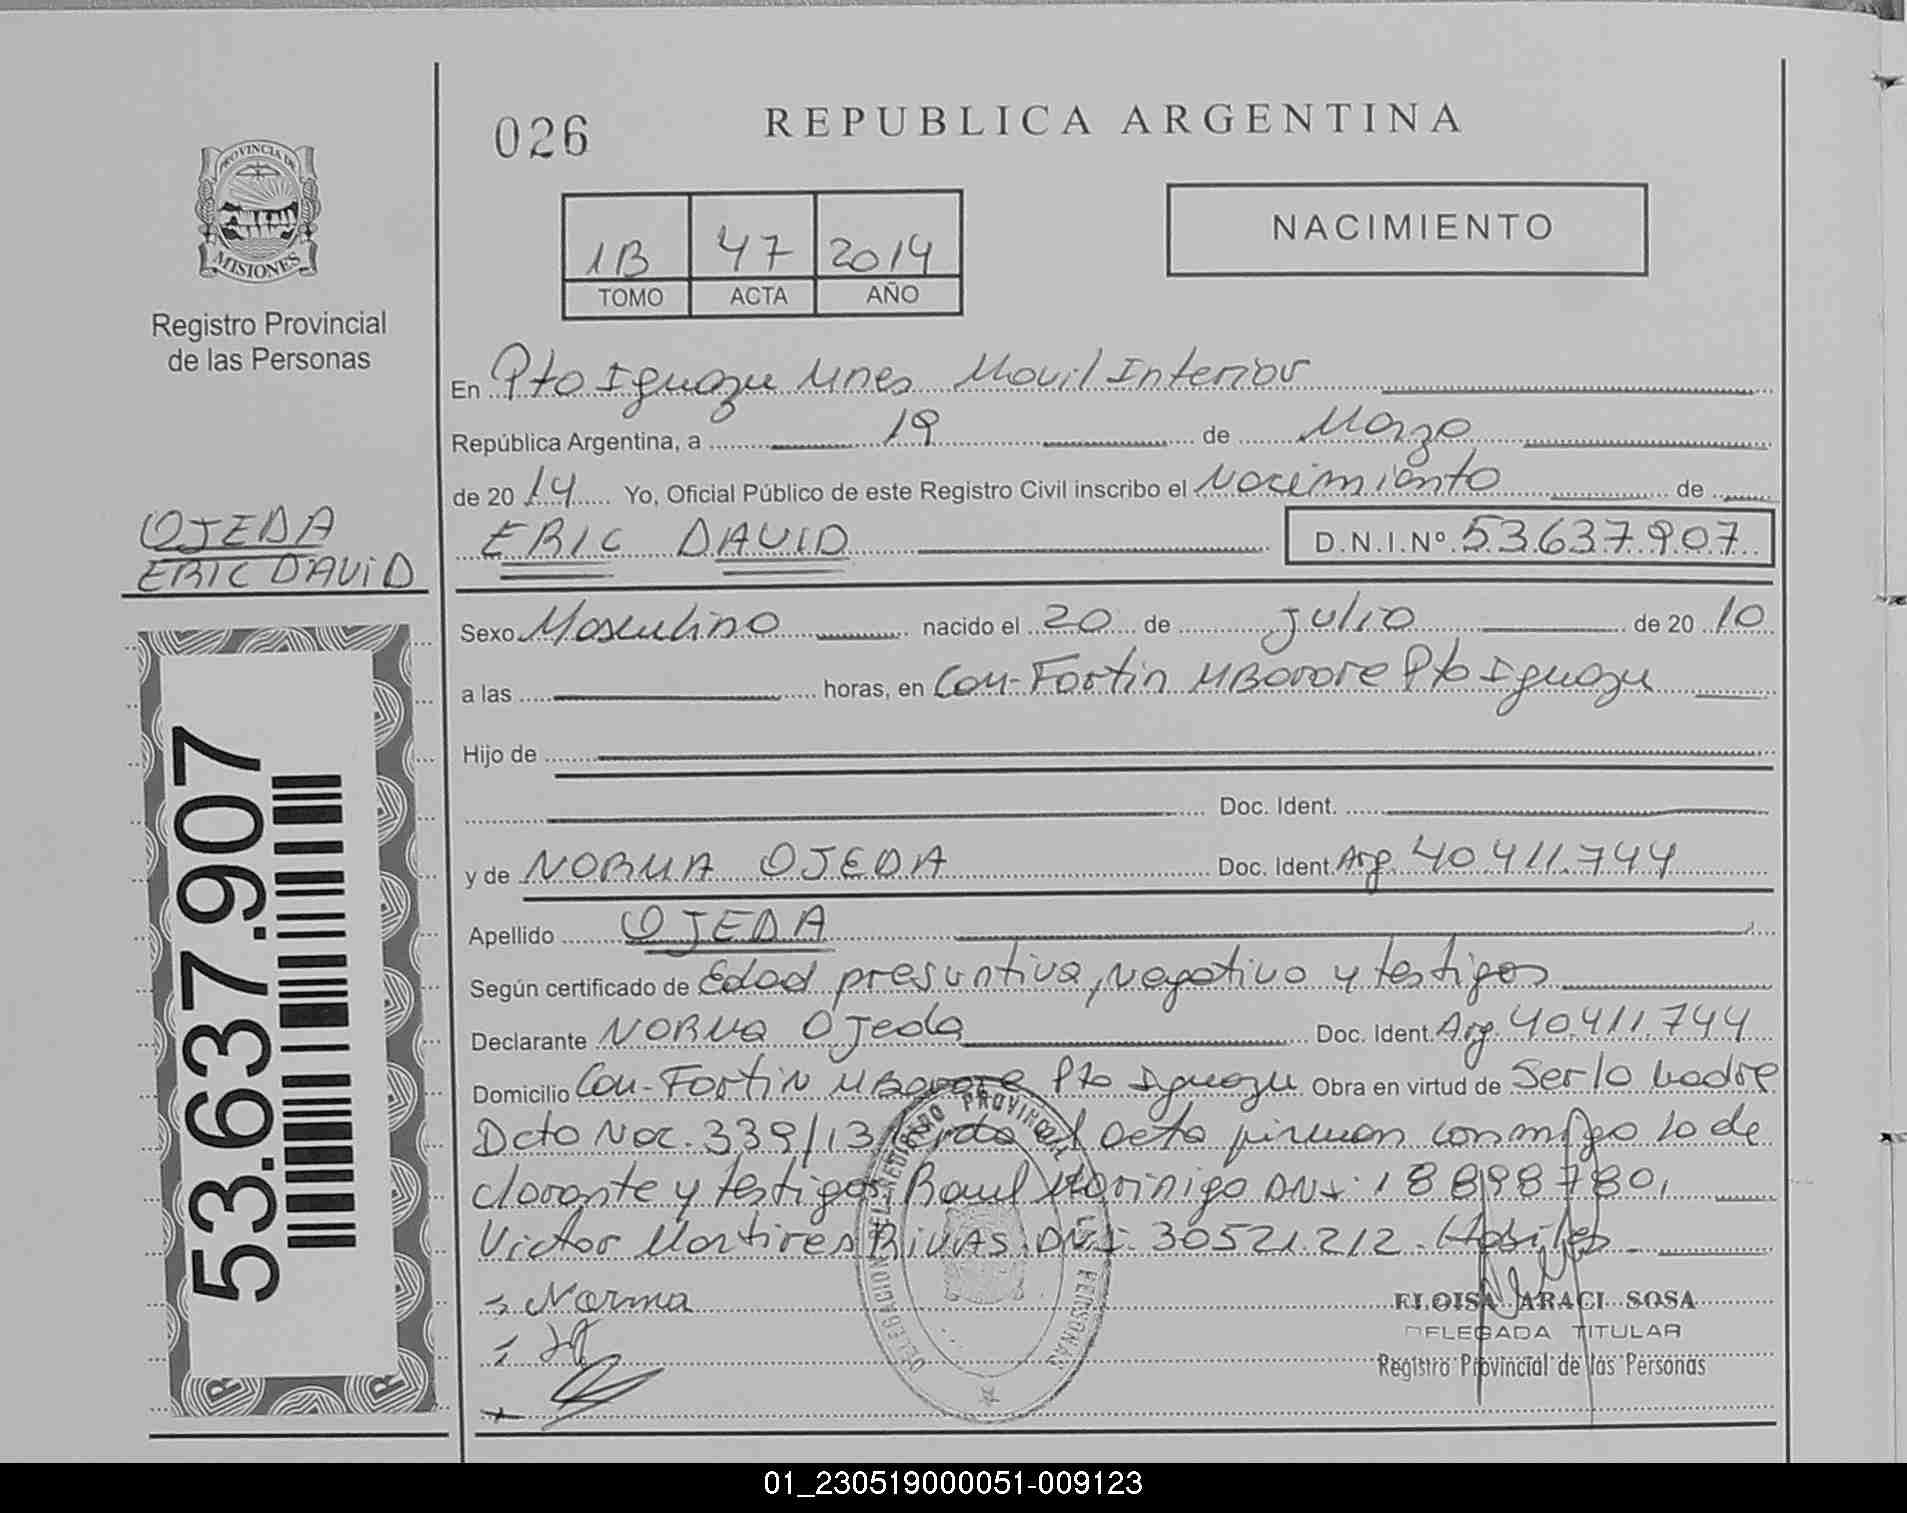 026
REPUBLICA ARGENTINA
PROVINCIA DE
MISIONES
Registro Provincial
de las Personas
1B 47 2014
TOMO ACTA AÑO
NACIMIENTO
En Pto Iguazu Mnes Movil Interior
República Argentina, a 19 de Marzo
de 2014 Yo, Oficial Público de este Registro Civil inscribo el Nacimiento de
OJEDA
ERIC DAVID
ERIC DAVID D.N.I.Nº 53.637.907
Sexo Masculino nacido el 20 de Julio de 2010
a las horas, en Com-Fortin MBorore Pto Iguazu
Hijo de
Doc. Ident.
y de NORMA OJEDA Doc. Ident. Arg. 40.411.744
Apellido OJEDA
Según certificado de Edad presuntiva, Negativo y testigos
Declarante NORMA Ojeda Doc. Ident. Arg. 40.411.744
Domicilio Com-Fortin MBorore Pto Iguazu Obra en virtud de Ser la Madre
Dcto Nac. 339/13 Leida el Acta firman conmigo la de
clarante y testigos Raul Morinigo DNI: 18898780,
Victor Martires RIVAS. DNI: 30521.212. Habiles
Norma
53.637.907
DELEGACION REGISTRO PROVINCIAL DE LAS PERSONAS
ELOISA ARACI SOSA
DELEGADA TITULAR
Registro Provincial de las Personas
01_230519000051-009123